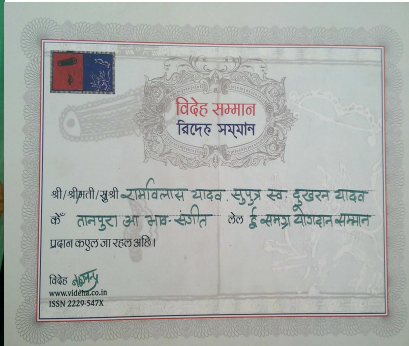 विदेह सम्मान
বিদেহ সম্মান
श्री/श्रीमती/सुश्री रामविलास यादव, सुपुत्र स्व. दुखरन यादव
कें तानपुरा आ भाव-संगीत लेल ई समग्र योगदान सम्मान
प्रदान कएल जा रहल अछि।
विदेह
www.videha.co.in
ISSN 2229-547X